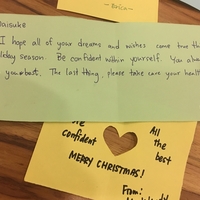 ~ Balca ~
Daisuke
I hope all of your dreams and wishes came true th
holiday season. Be confident within yourself. You alwa
your best. The last thing, please take care your healt
Be confident
All the best
MERRY CHRISTMAS!
From: